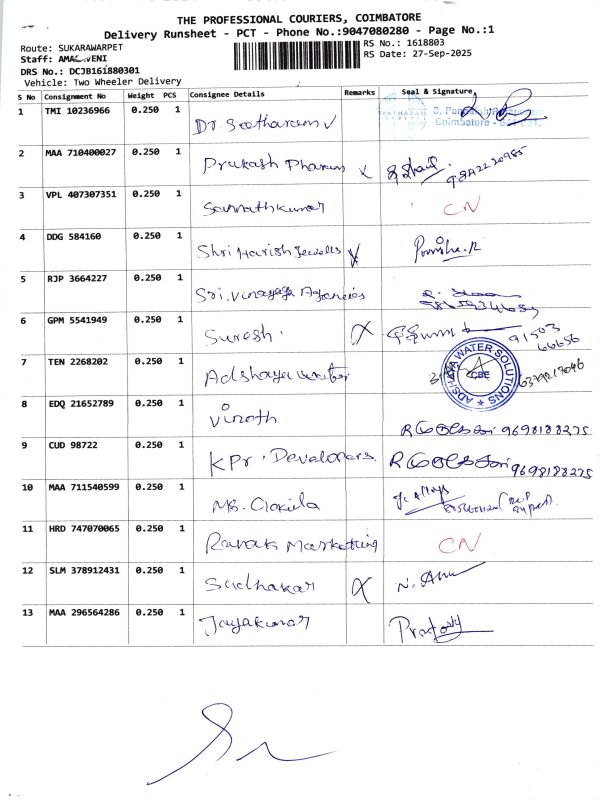 THE PROFESSIONAL COURIERS, COIMBATORE
Delivery Runsheet - PCT - Phone No.:9047080280 - Page No.:1
Route: SUKARAWARPET
RS No.: 1618803
Staff:
RS Date: 27-Sep-2025
DRS No.: DCJB161880301
Vehicle: Two Wheeler Delivery
S No Consignment No Weight PCS Consignee Details Remarks Seal & Signature
1 TMI 10236966 0.250 1 Dr. Seetharam
Coimbatore -
2 MAA 710400027 0.250 1 Prakash Pharam
3 VPL 407307351 0.250 1 Sannathkumar CN
4 DDG 584160 0.250 1 Shri Harish Jewells
5 RJP 3664227 0.250 1 Sri. Vinayaga Agencies
6 GPM 5541949 0.250 1 Suresh. 91503
66656
7 TEN 2268202 0.250 1 Adshaya water ADSHAYA WATER SOLUTIONS CBE
8 EDQ 21652789 0.250 1 Vinoth 9698188275
9 CUD 98722 0.250 1 KPr. Developers. 9698188275
10 MAA 711540599 0.250 1 Ms. Gokila
11 HRD 747070065 0.250 1 Marketting CN
12 SLM 378912431 0.250 1 Sudhakar
13 MAA 296564286 0.250 1 Jayakumar